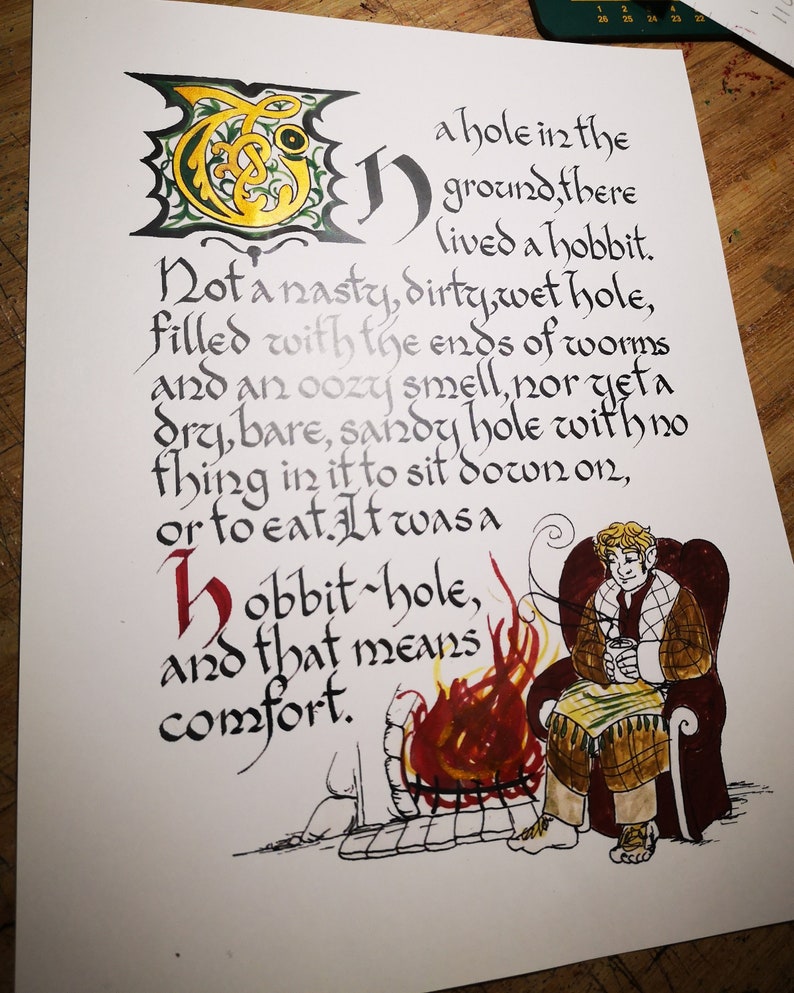 In a hole in the
ground, there
lived a hobbit.
Not a nasty, dirty, wet hole,
filled with the ends of worms
and an oozy smell, nor yet a
dry, bare, sandy hole with no
thing in it to sit down on,
or to eat. It was a
hobbit~hole,
and that means
comfort.
1 2 3 4
26 25 24 23 22